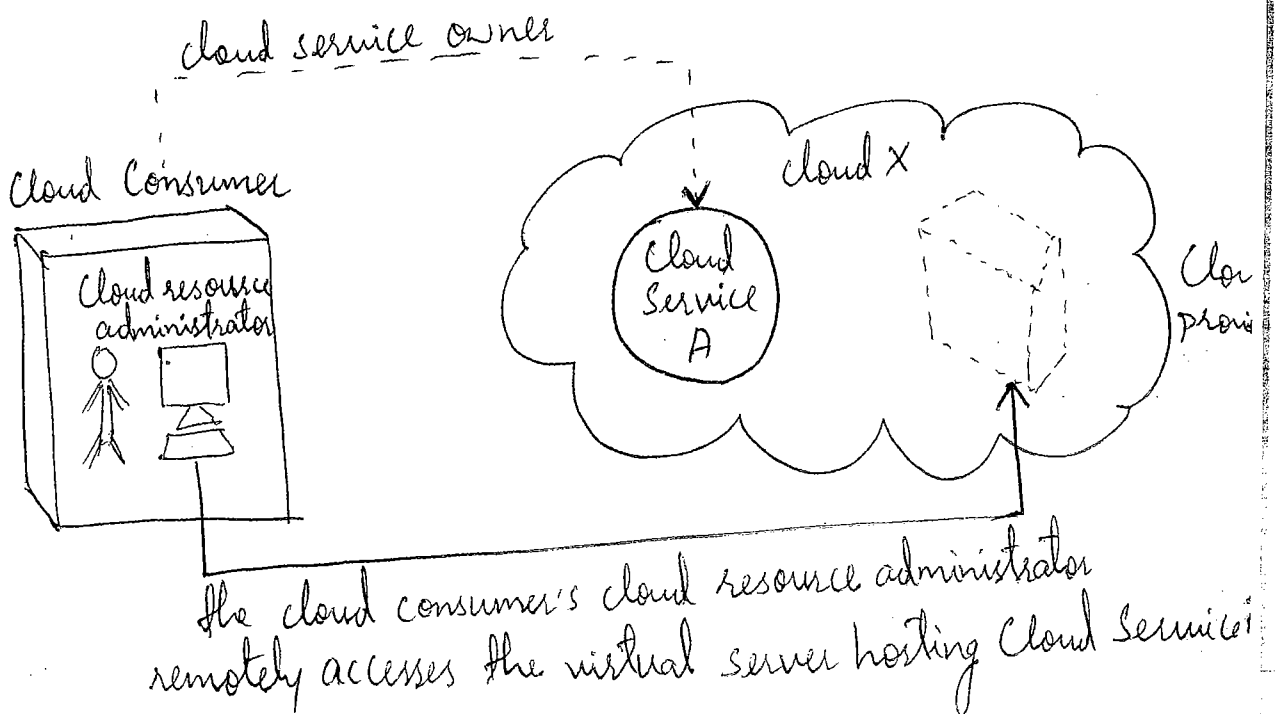 cloud service owner
Cloud Consumer
cloud X
Cloud resource
administrator
Cloud
Service
A
Clou
provi
the cloud consumer's cloud resource administrator
remotely accesses the virtual server hosting Cloud Service